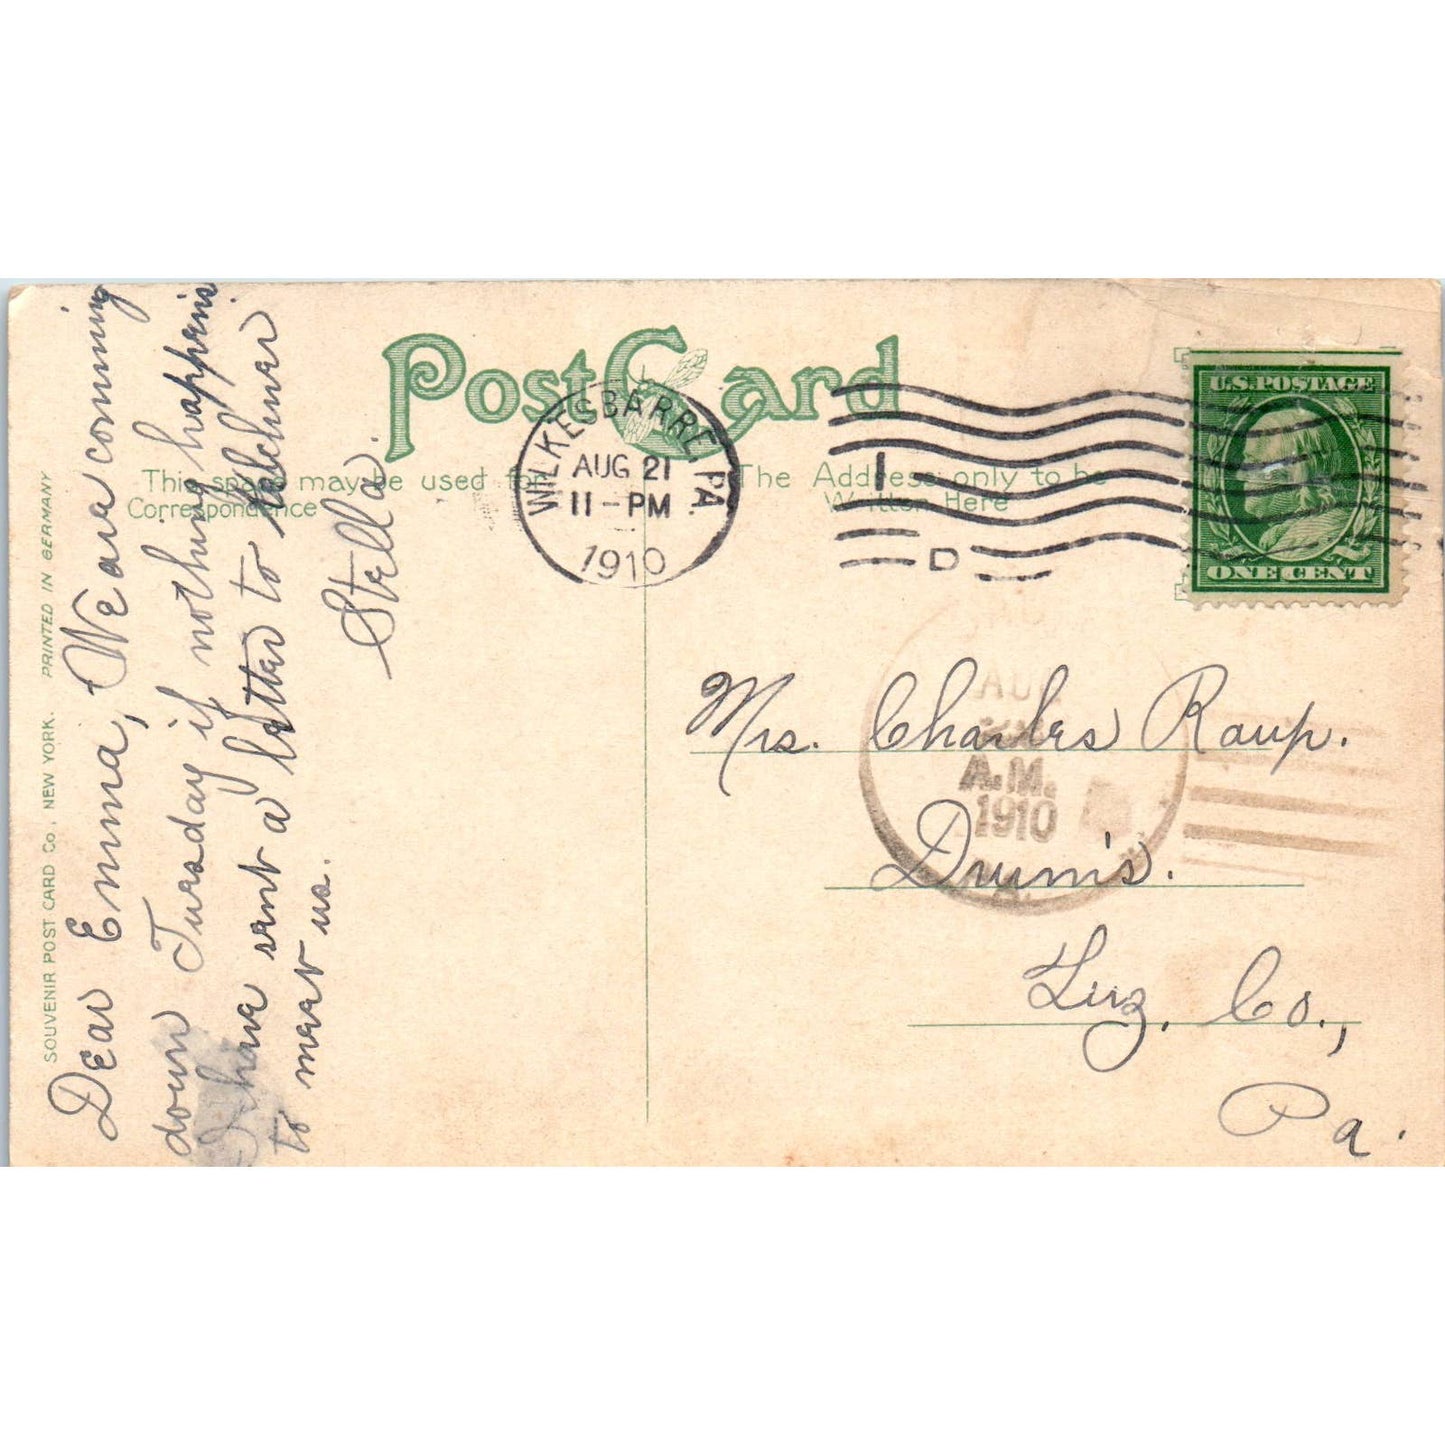 Post Card
This space may be used for
Correspondence
The Address only to be
Written Here
WILKES BARRE, PA
AUG 21
11-PM
1910
D
U.S. POSTAGE
ONE CENT
AUG
A.M.
1910
Mrs. Charles Raup.
Drum's.
Luz. Co.,
Pa.
Dear Emma, We are coming
down Tuesday if nothing happens
I have sent a letter to
to meet us.
Stella.
SOUVENIR POST CARD Co., NEW YORK. PRINTED IN GERMANY